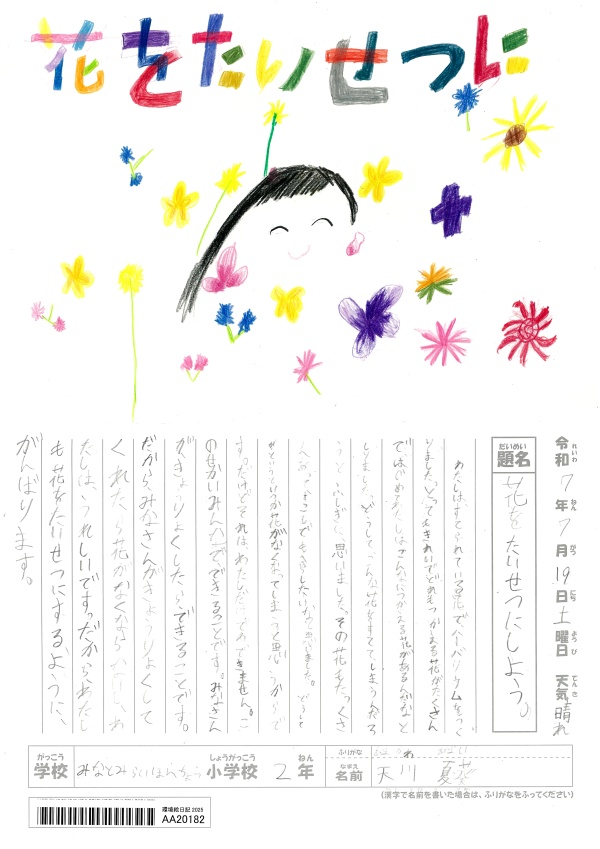 花をたいせつに
令和7年7月19日土曜日 天気晴れ
れいわ ねん がつ にち ようび てんき
だいめい
題名 花をたいせつにしよう。
わたしは、すてられている花で、ハーバリウムをつく
りました。とってもきれいでどれもつかえる花がたくさん
で、はじめてわたしはこんなにつかえる花があるんだなと
しりました。どうしてこんな花をすててしまうんだろ
うと、ふしぎに思いました。その花をたくさ
だけどそれはわたしひとりでできません。こ
のせかいみんなでできることです。みなさん
がきょうりょくしたらできることです。
だから、みなさんがきょうりょくして
くれたら花がなくならないし、わ
たしは、うれしいです。だから、わたし
も花をたいせつにするように、
がんばります。
がっこう しょうがっこう ねん
学校 みなとみらいほんちょう 小学校 2年
ふりがな
なまえ
名前 天川 夏
(漢字で名前を書いた場合は、ふりがなをふってください)
環境絵日記 2025
AA20182